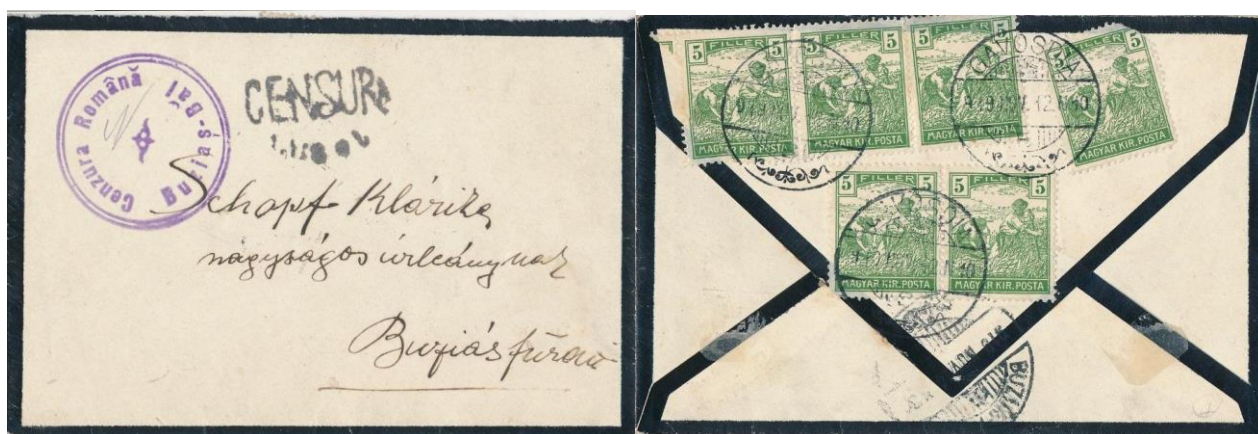 Cenzura Română
Buziaș-Băi
CENSURA
Schopf Klárika
nagyságos úrleánynak
Buziásfürdő
5 FILLER 5
MAGYAR KIR. POSTA
5 FILLER 5
MAGYAR KIR. POSTA
5 FILLER 5
MAGYAR KIR. POSTA
5
MAGYAR KIR. POSTA
GAVOSDIA
5 FILLER 5
MAGYAR KIR. POSTA
5 FILLER 5
MAGYAR KIR. POSTA